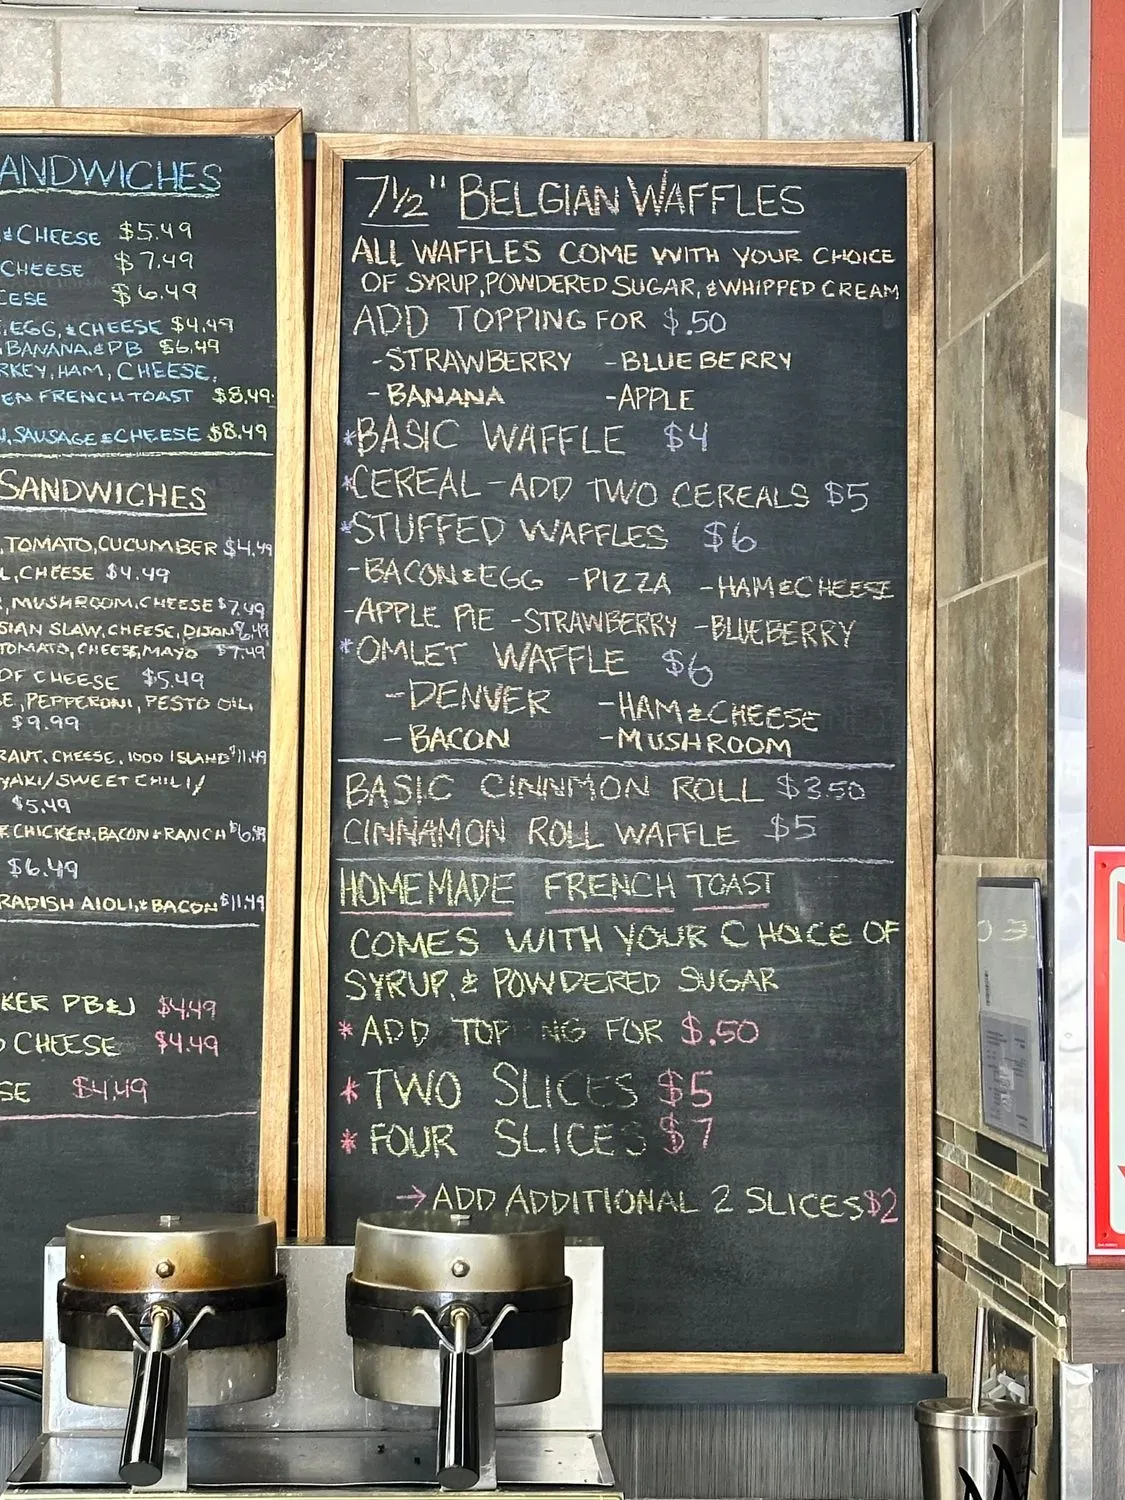 ANDWICHES
& CHEESE $5.49
CHEESE $7.49
EESE $6.49
, EGG, & CHEESE $4.49
, BANANA, & PB $6.49
RKEY, HAM, CHEESE,
EN FRENCH TOAST $8.49
, SAUSAGE & CHEESE $8.49
SANDWICHES
, TOMATO, CUCUMBER $4.49
L, CHEESE $4.49
, MUSHROOM, CHEESE $7.49
SIAN SLAW, CHEESE, DIJON $6.49
TOMATO, CHEESE, MAYO $7.49
OF CHEESE $5.49
SE, PEPPERONI, PESTO OIL
$9.99
RAUT, CHEESE, 1000 ISLAND $11.49
YAKI/SWEET CHILI/
$5.49
CHICKEN, BACON & RANCH $6.49
$6.49
RADISH AIOLI, & BACON $11.49
KER PB&J $4.49
D CHEESE $4.49
SE $4.49
7½" BELGIAN WAFFLES
ALL WAFFLES COME WITH YOUR CHOICE
OF SYRUP, POWDERED SUGAR, & WHIPPED CREAM
ADD TOPPING FOR $.50
-STRAWBERRY -BLUEBERRY
-BANANA -APPLE
*BASIC WAFFLE $4
*CEREAL-ADD TWO CEREALS $5
*STUFFED WAFFLES $6
-BACON & EGG -PIZZA -HAM & CHEESE
-APPLE PIE -STRAWBERRY -BLUEBERRY
*OMLET WAFFLE $6
-DENVER -HAM & CHEESE
-BACON -MUSHROOM
BASIC CINNMON ROLL $3.50
CINNAMON ROLL WAFFLE $5
HOMEMADE FRENCH TOAST
COMES WITH YOUR CHOICE OF
SYRUP, & POWDERED SUGAR
*ADD TOP NG FOR $.50
*TWO SLICES $5
*FOUR SLICES $7
→ADD ADDITIONAL 2 SLICES $2